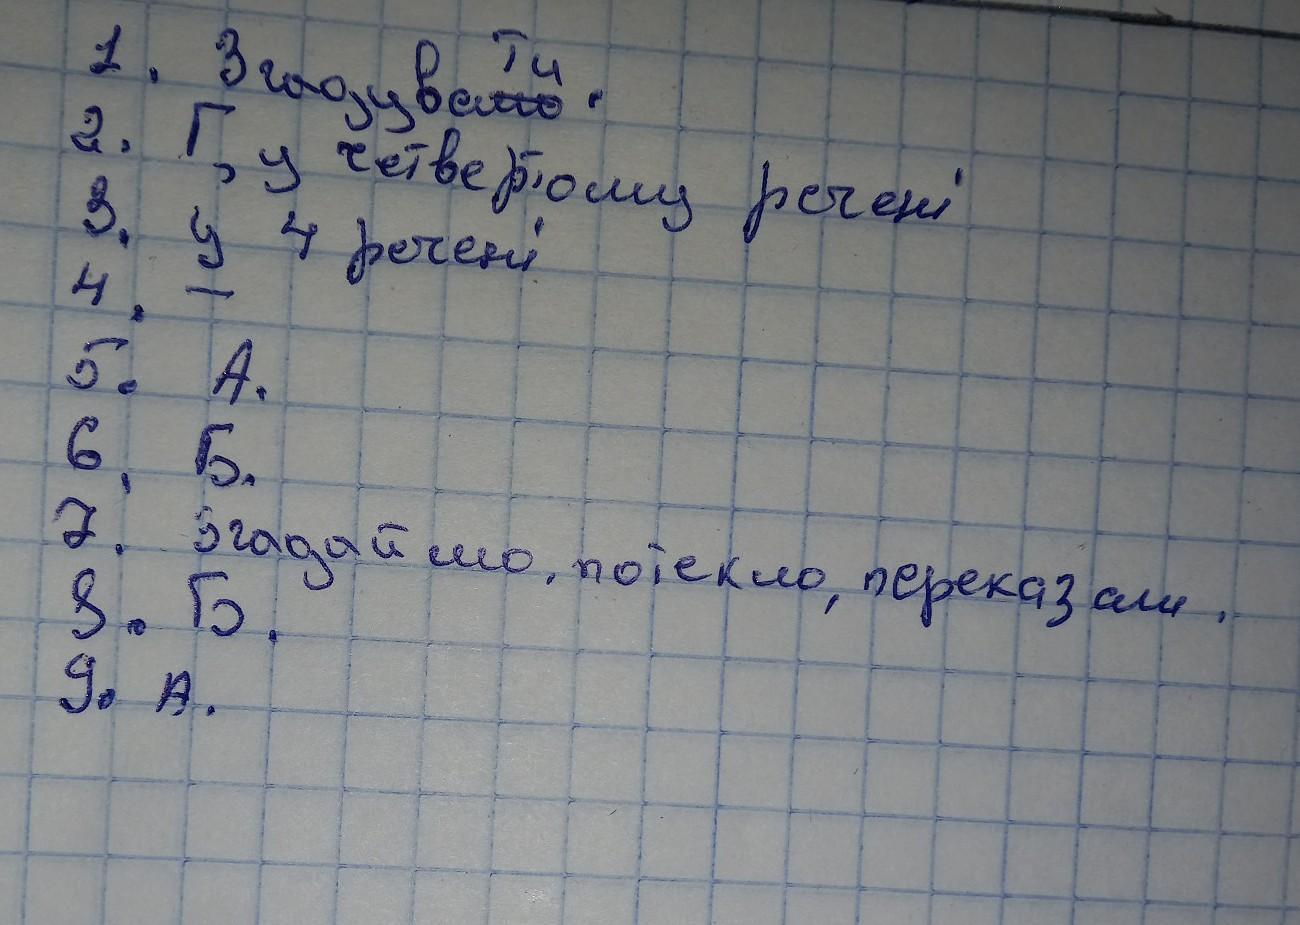 1. Згадувати.
2. Г, у четвертому речені
3. у 4 речені
4. –
5. А.
6. Б.
7. згадаймо, потекло, переказали.
8. Б.
9. А.